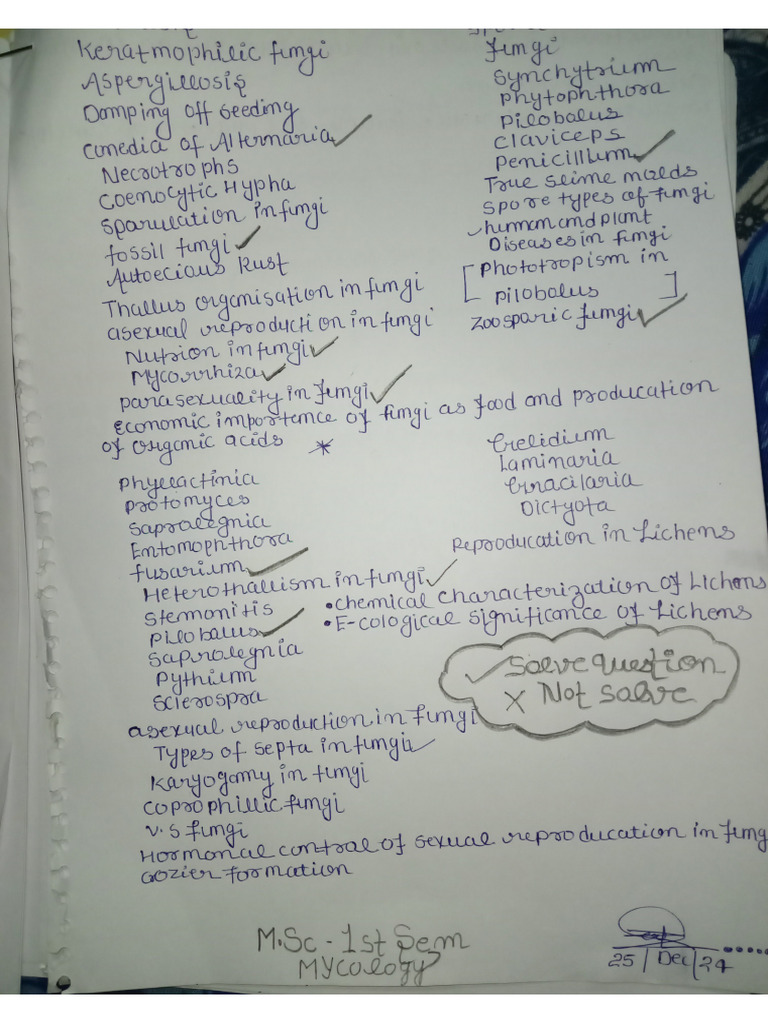 Keratmophilic fungi
Aspergillosis
Damping off seeding
conedia of Alternaria ✓
Necrotrophs
Coenocytic Hypha
sparulation in fungi
fossil fungi ✓
Autoecious Rust
Thallus organisation in fungi
asexual reproduction in fungi
Nutrion in fungi ✓
Mycorrhiza ✓
parasexuality in fungi ✓
Economic importence of fungi as food and producation
of organic acids *
fungi
Synchytrium
phytophthora
pilobalus
claviceps
penicillum ✓
True slime molds
spore types of fungi
✓ human and plant
Diseases in fungi
[ phototropism in
pilobalus ]
zoosporic fungi ✓
phyllactinia
protomyces
sapralegnia
Entomophthora
fusarium ✓
Heterothallism in fungi ✓
stemonitis
pilobalus ✓
saprolegnia
pythium
sclerospra
Gelidium
Laminaria
Gracilaria
Dictyota
Reproducation in Lichens
• chemical characterization of Lichens
• E-cological significance of Lichens
✓ Solve question
X Not salve
asexual reproduction in fungi
Types of septa in fungi ✓
Karyogamy in fungi
coprophillic fungi
V.S fungi
Hormonal contral of sexual reproducation in fung
Gozier formation
M.Sc - 1st Sem
Mycology
25 / Dec / 24